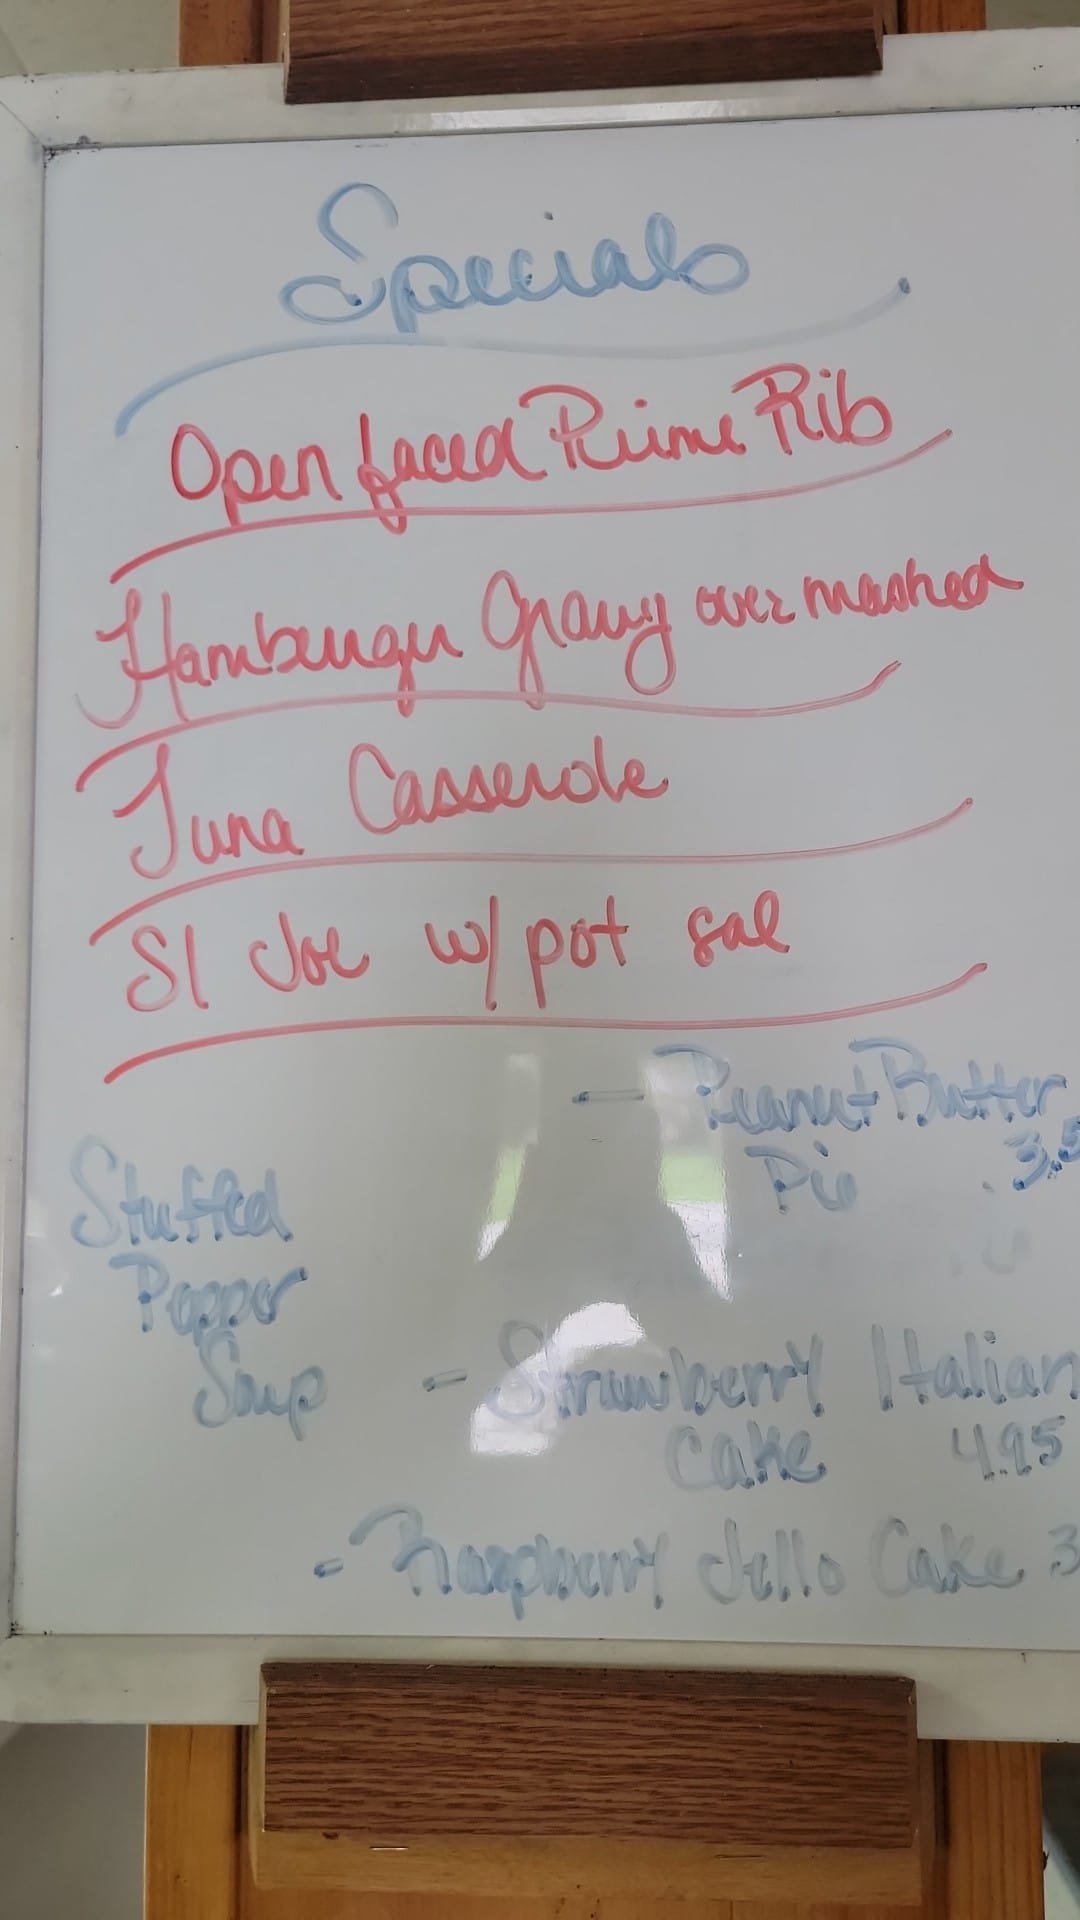 Specials
Open faced Prime Rib
Hamburger Gravy over mashed
Tuna Casserole
Sl Joe w/ pot sal
- Peanut Butter
Pie 3.5
Stuffed
Pepper
Soup
- Strawberry Italian
Cake 4.95
- Raspberry Jello Cake 3